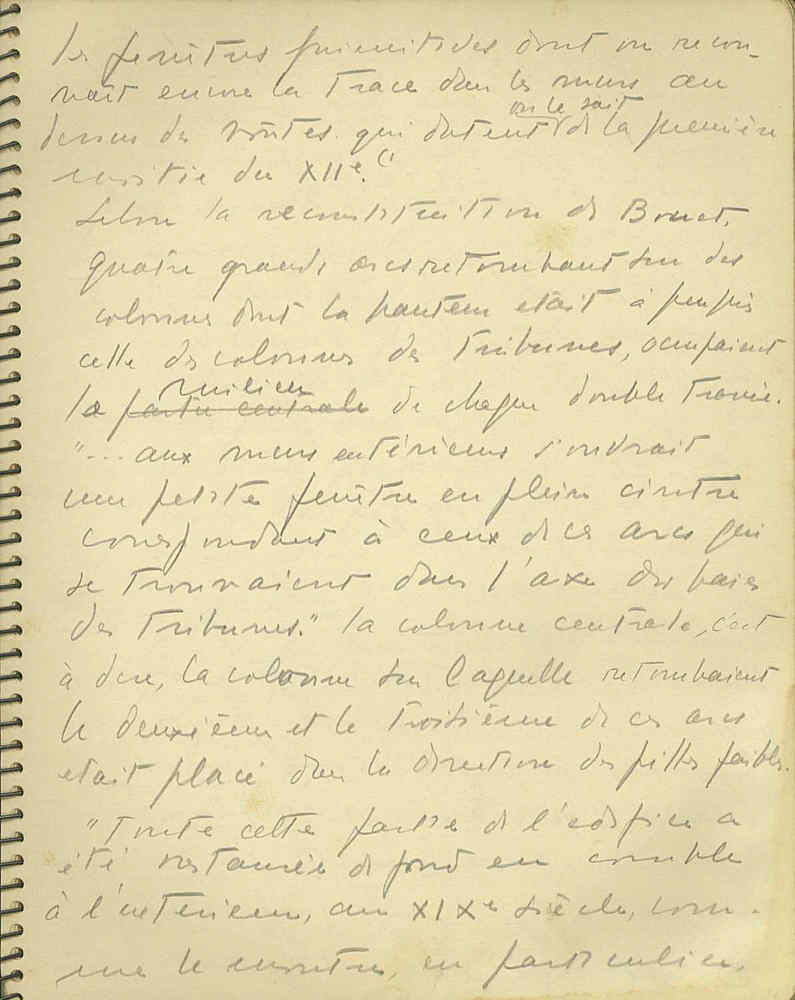 les fenêtres primitives dont on recon-
naît encore la trace dans les murs au
on le sait
dessus des voûtes qui datent de la première
moitié du XIIe. (1
Selon la reconstitution de Bouet,
quatre grands arcs retombant sur des
colonnes dont la hauteur était à peu près
celle des colonnes des Tribunes, occupaient
milieu
le partie centrale de chaque double travée.
"... aux murs extérieurs s'ouvrait
une petite fenêtre en plein cintre
correspondant à ceux de ces arcs qui
se trouvaient dans l'axe des baies
des Tribunes." la colonne centrale, c'est
à dire, la colonne sur laquelle retombaient
le deuxième et le troisième de ces arcs
était placé dans la direction des piles faibles.
"Toute cette partie de l'édifice a
été restaurée de fond en comble
à l'extérieur, au XIXe siècle, com-
me le montre, en particulier,